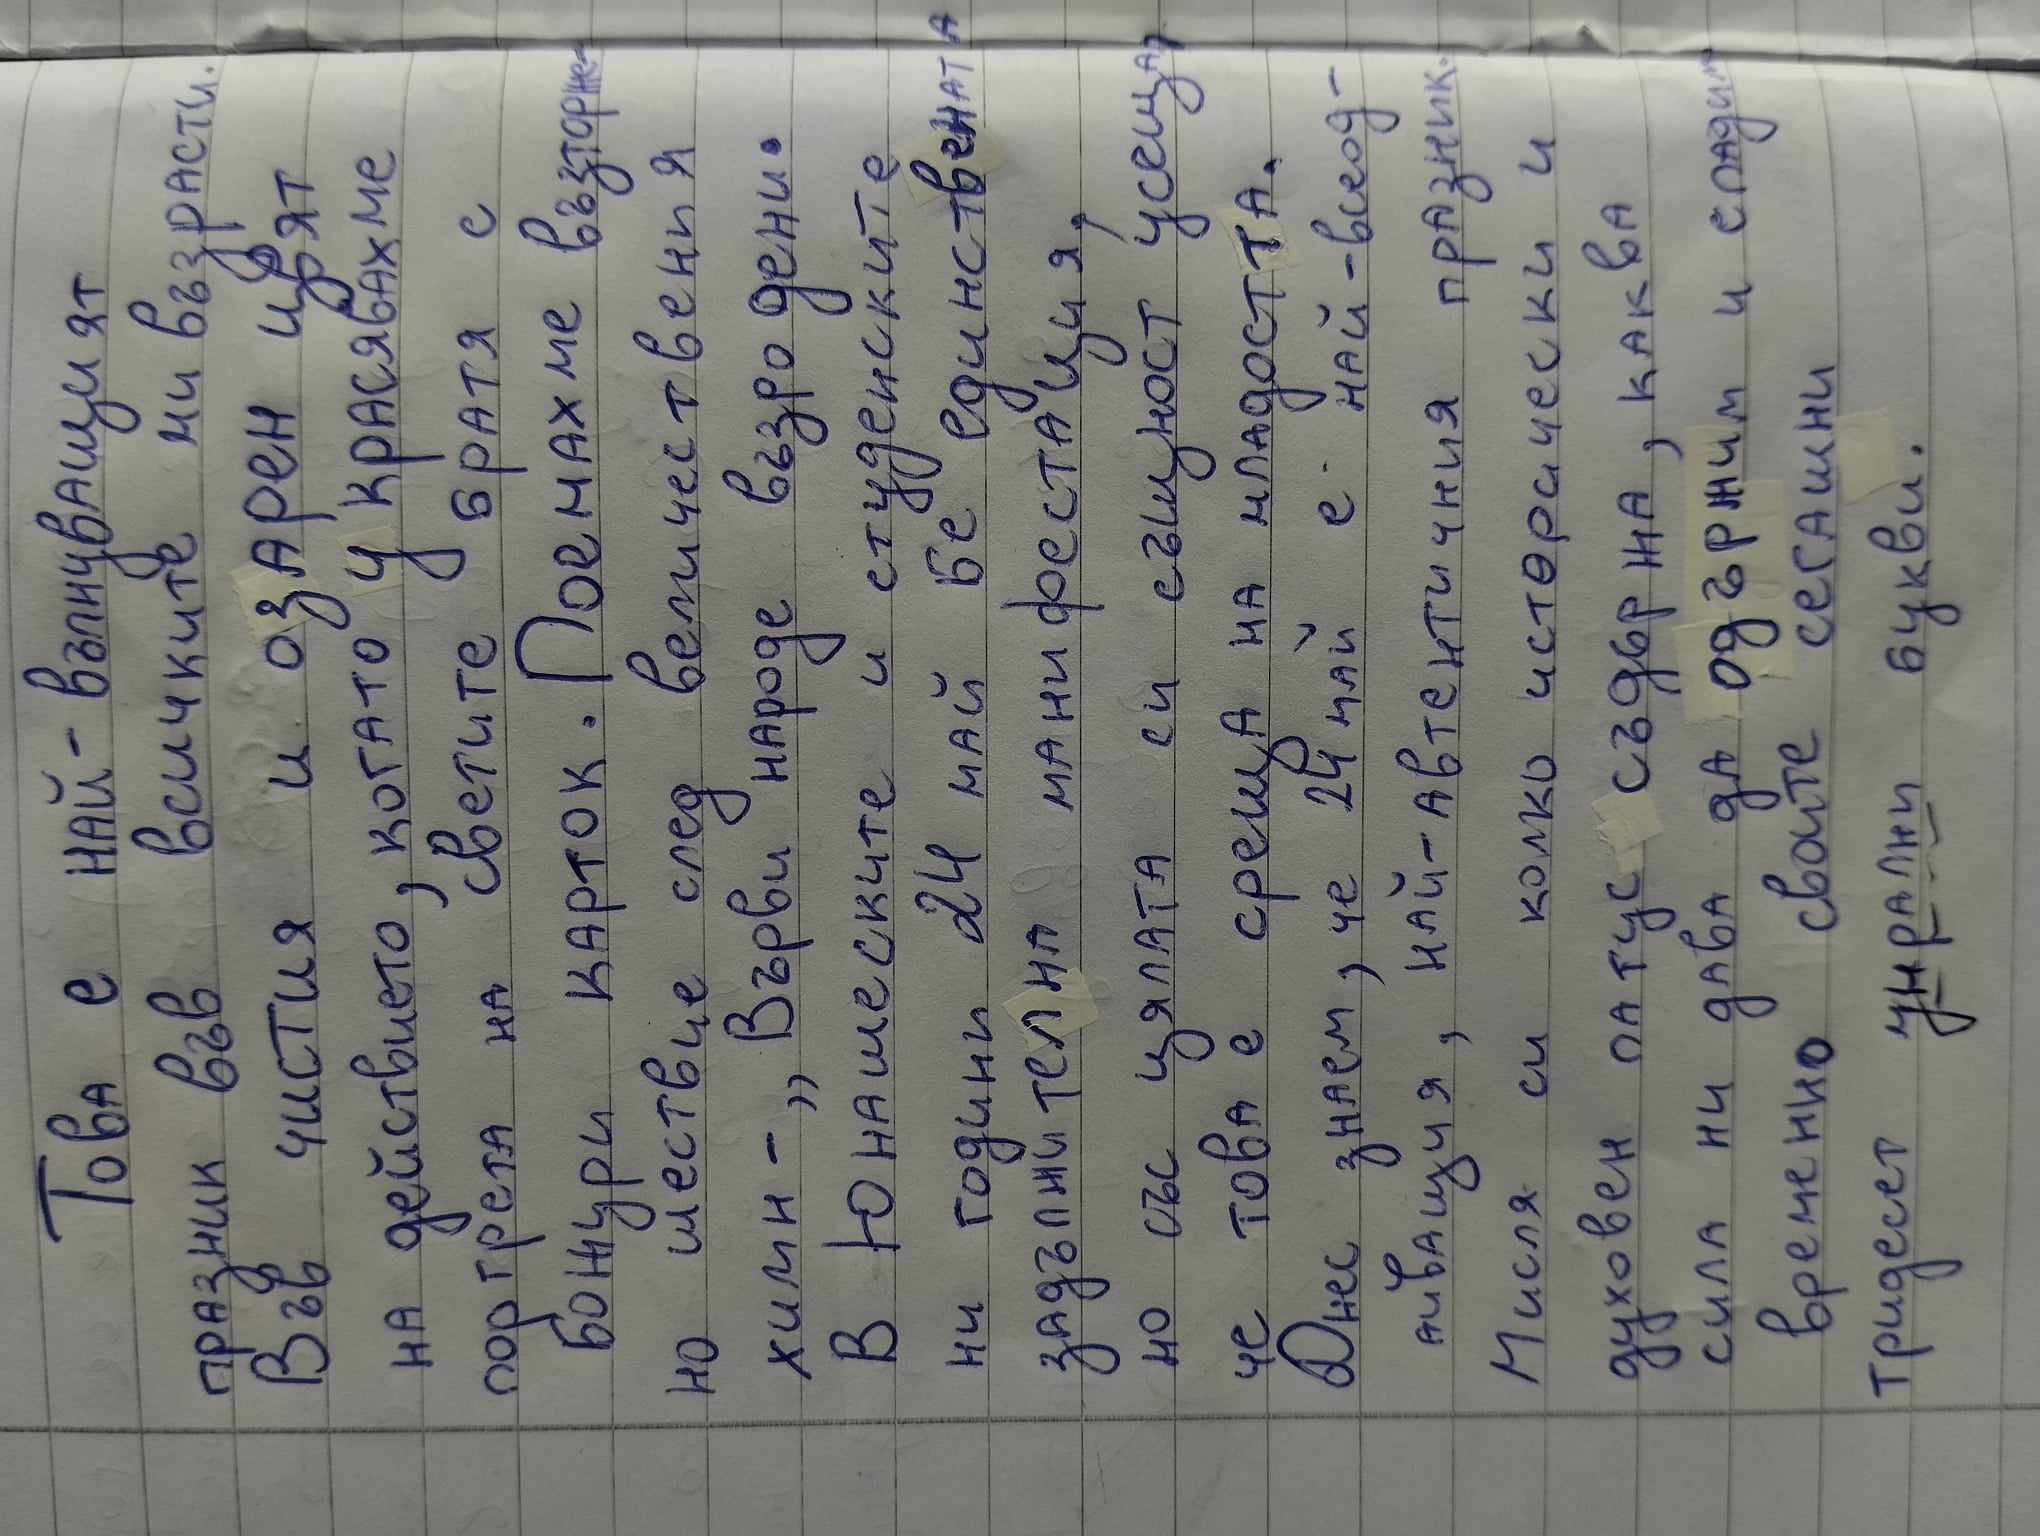 Това е най-вълнуващият
празник във всичките ни възрасти.
Във чистия и озарен цврят
на действието, когато украсявахме
портрета на светите братя с
божури карток. Поемахме възторже-
но шествие след величествения
химн-„Върви народе възродени.
В Юнашеските и студенските
ни години 24 май бе единствената
задължителна манифестация,
но със цялата си същност усещах,
че това е среща на младостта.
Днес знаем, че 24 май е най-всеод-
аиващия, най-автентичния празник.
Мисля си колко исторически и
духовен патус съдържа, каква
сила ни дава да одържим и сладим
временно своите сегашни
тридесет унрални букви.